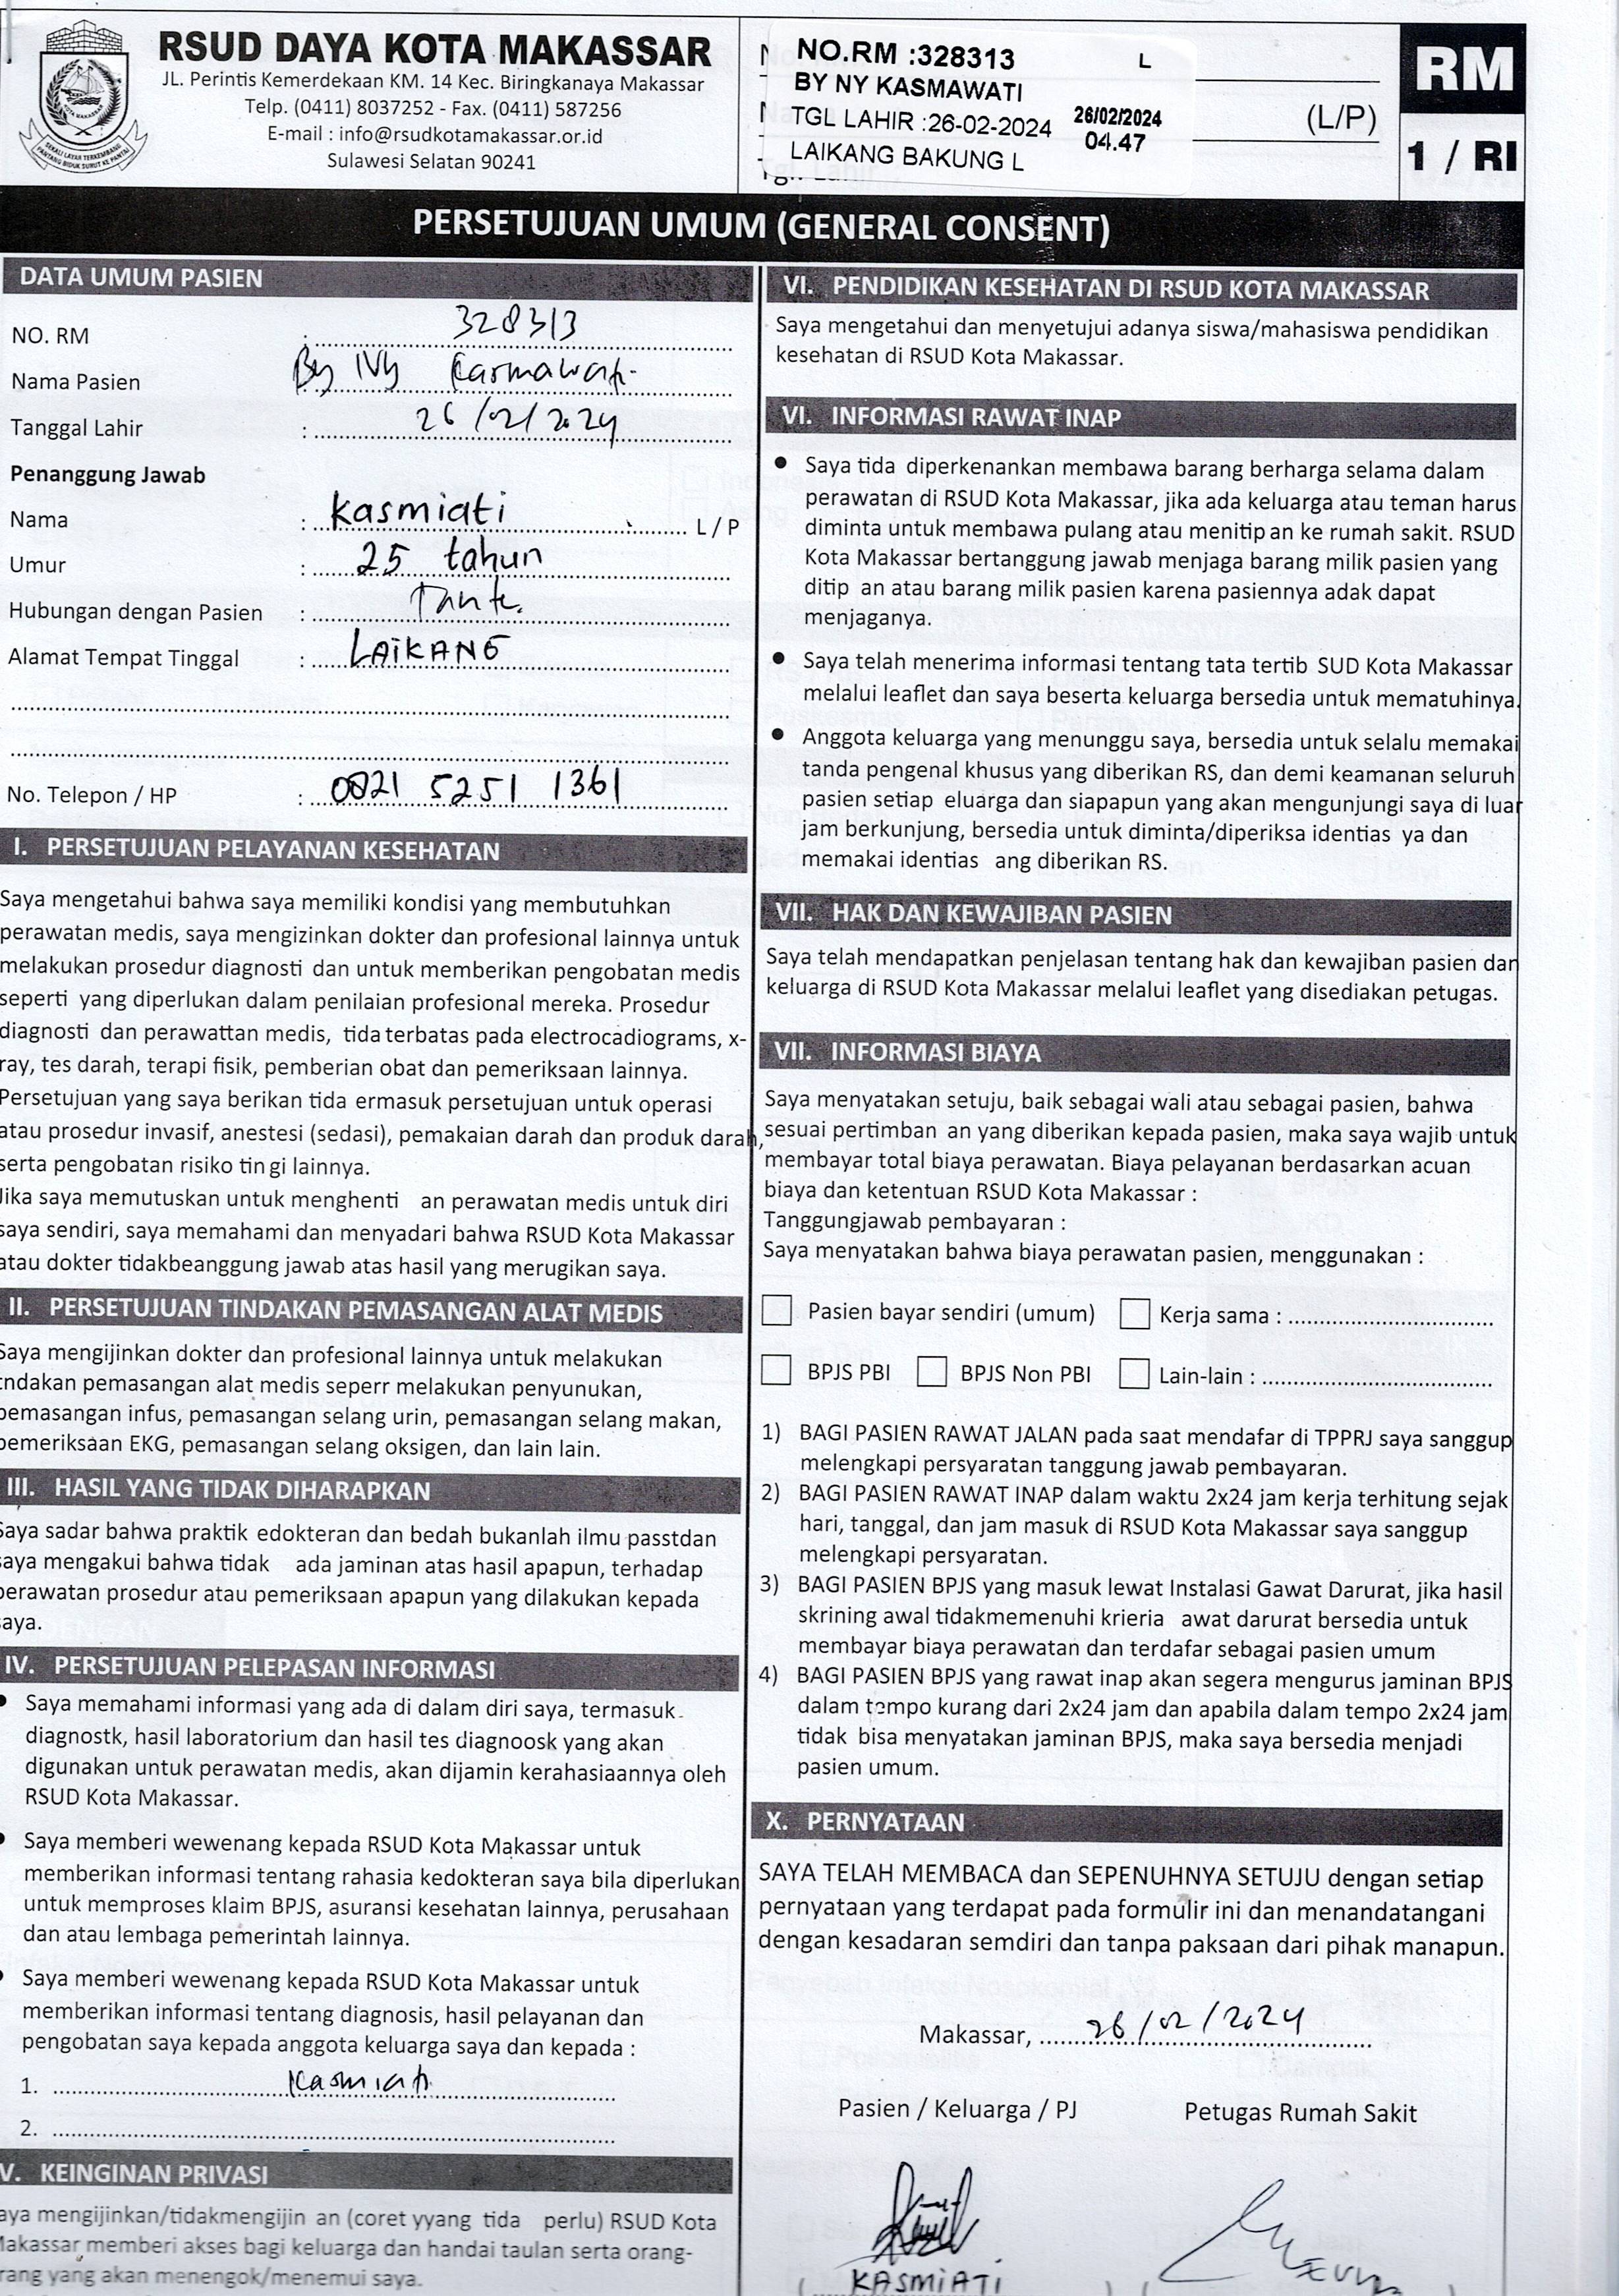 RSUD DAYA KOTA MAKASSAR
JL. Perintis Kemerdekaan KM. 14 Kec. Biringkanaya Makassar
Telp. (0411) 8037252 - Fax. (0411) 587256
E-mail : info@rsudkotamakassar.or.id
Sulawesi Selatan 90241
NO.RM :328313 L
BY NY KASMAWATI
TGL LAHIR :26-02-2024 26/02/2024
04.47
LAIKANG BAKUNG L
(L/P)
RM
1 / RI
PERSETUJUAN UMUM (GENERAL CONSENT)
DATA UMUM PASIEN
NO. RM : 328313
Nama Pasien : By Ny Kasmawati
Tanggal Lahir : 26/02/2024
Penanggung Jawab
Nama : Kasmiati L / P
Umur : 25 tahun
Hubungan dengan Pasien : Tante
Alamat Tempat Tinggal : LAIKANG
No. Telepon / HP : 0821 5251 1361
I. PERSETUJUAN PELAYANAN KESEHATAN
Saya mengetahui bahwa saya memiliki kondisi yang membutuhkan
perawatan medis, saya mengizinkan dokter dan profesional lainnya untuk
melakukan prosedur diagnosti dan untuk memberikan pengobatan medis
seperti yang diperlukan dalam penilaian profesional mereka. Prosedur
diagnosti dan perawattan medis, tida terbatas pada electrocadiograms, x-
ray, tes darah, terapi fisik, pemberian obat dan pemeriksaan lainnya.
Persetujuan yang saya berikan tida ermasuk persetujuan untuk operasi
atau prosedur invasif, anestesi (sedasi), pemakaian darah dan produk darah,
serta pengobatan risiko tin gi lainnya.
Jika saya memutuskan untuk menghenti an perawatan medis untuk diri
saya sendiri, saya memahami dan menyadari bahwa RSUD Kota Makassar
atau dokter tidakbeanggung jawab atas hasil yang merugikan saya.
II. PERSETUJUAN TINDAKAN PEMASANGAN ALAT MEDIS
Saya mengijinkan dokter dan profesional lainnya untuk melakukan
tndakan pemasangan alat medis seperr melakukan penyunukan,
pemasangan infus, pemasangan selang urin, pemasangan selang makan,
pemeriksaan EKG, pemasangan selang oksigen, dan lain lain.
III. HASIL YANG TIDAK DIHARAPKAN
Saya sadar bahwa praktik edokteran dan bedah bukanlah ilmu passtdan
saya mengakui bahwa tidak ada jaminan atas hasil apapun, terhadap
perawatan prosedur atau pemeriksaan apapun yang dilakukan kepada
saya.
IV. PERSETUJUAN PELEPASAN INFORMASI
• Saya memahami informasi yang ada di dalam diri saya, termasuk
diagnostk, hasil laboratorium dan hasil tes diagnoosk yang akan
digunakan untuk perawatan medis, akan dijamin kerahasiaannya oleh
RSUD Kota Makassar.
• Saya memberi wewenang kepada RSUD Kota Makassar untuk
memberikan informasi tentang rahasia kedokteran saya bila diperlukan
untuk memproses klaim BPJS, asuransi kesehatan lainnya, perusahaan
dan atau lembaga pemerintah lainnya.
• Saya memberi wewenang kepada RSUD Kota Makassar untuk
memberikan informasi tentang diagnosis, hasil pelayanan dan
pengobatan saya kepada anggota keluarga saya dan kepada :
1. Kasmiati
2.
V. KEINGINAN PRIVASI
aya mengijinkan/tidakmengijin an (coret yyang tida perlu) RSUD Kota
Makassar memberi akses bagi keluarga dan handai taulan serta orang-
rang yang akan menengok/menemui saya.
VI. PENDIDIKAN KESEHATAN DI RSUD KOTA MAKASSAR
Saya mengetahui dan menyetujui adanya siswa/mahasiswa pendidikan
kesehatan di RSUD Kota Makassar.
VI. INFORMASI RAWAT INAP
• Saya tida diperkenankan membawa barang berharga selama dalam
perawatan di RSUD Kota Makassar, jika ada keluarga atau teman harus
diminta untuk membawa pulang atau menitip an ke rumah sakit. RSUD
Kota Makassar bertanggung jawab menjaga barang milik pasien yang
ditip an atau barang milik pasien karena pasiennya adak dapat
menjaganya.
• Saya telah menerima informasi tentang tata tertib SUD Kota Makassar
melalui leaflet dan saya beserta keluarga bersedia untuk mematuhinya.
• Anggota keluarga yang menunggu saya, bersedia untuk selalu memakai
tanda pengenal khusus yang diberikan RS, dan demi keamanan seluruh
pasien setiap eluarga dan siapapun yang akan mengunjungi saya di luar
jam berkunjung, bersedia untuk diminta/diperiksa identias ya dan
memakai identias ang diberikan RS.
VII. HAK DAN KEWAJIBAN PASIEN
Saya telah mendapatkan penjelasan tentang hak dan kewajiban pasien dan
keluarga di RSUD Kota Makassar melalui leaflet yang disediakan petugas.
VII. INFORMASI BIAYA
Saya menyatakan setuju, baik sebagai wali atau sebagai pasien, bahwa
sesuai pertimban an yang diberikan kepada pasien, maka saya wajib untuk
membayar total biaya perawatan. Biaya pelayanan berdasarkan acuan
biaya dan ketentuan RSUD Kota Makassar :
Tanggungjawab pembayaran :
Saya menyatakan bahwa biaya perawatan pasien, menggunakan :
Pasien bayar sendiri (umum) Kerja sama :
BPJS PBI BPJS Non PBI Lain-lain :
1) BAGI PASIEN RAWAT JALAN pada saat mendafar di TPPRJ saya sanggup
melengkapi persyaratan tanggung jawab pembayaran.
2) BAGI PASIEN RAWAT INAP dalam waktu 2x24 jam kerja terhitung sejak
hari, tanggal, dan jam masuk di RSUD Kota Makassar saya sanggup
melengkapi persyaratan.
3) BAGI PASIEN BPJS yang masuk lewat Instalasi Gawat Darurat, jika hasil
skrining awal tidakmemenuhi krieria awat darurat bersedia untuk
membayar biaya perawatan dan terdafar sebagai pasien umum
4) BAGI PASIEN BPJS yang rawat inap akan segera mengurus jaminan BPJS
dalam tempo kurang dari 2x24 jam dan apabila dalam tempo 2x24 jam
tidak bisa menyatakan jaminan BPJS, maka saya bersedia menjadi
pasien umum.
X. PERNYATAAN
SAYA TELAH MEMBACA dan SEPENUHNYA SETUJU dengan setiap
pernyataan yang terdapat pada formulir ini dan menandatangani
dengan kesadaran semdiri dan tanpa paksaan dari pihak manapun.
Makassar, 26/02/2024
Pasien / Keluarga / PJ Petugas Rumah Sakit
KASMIATI